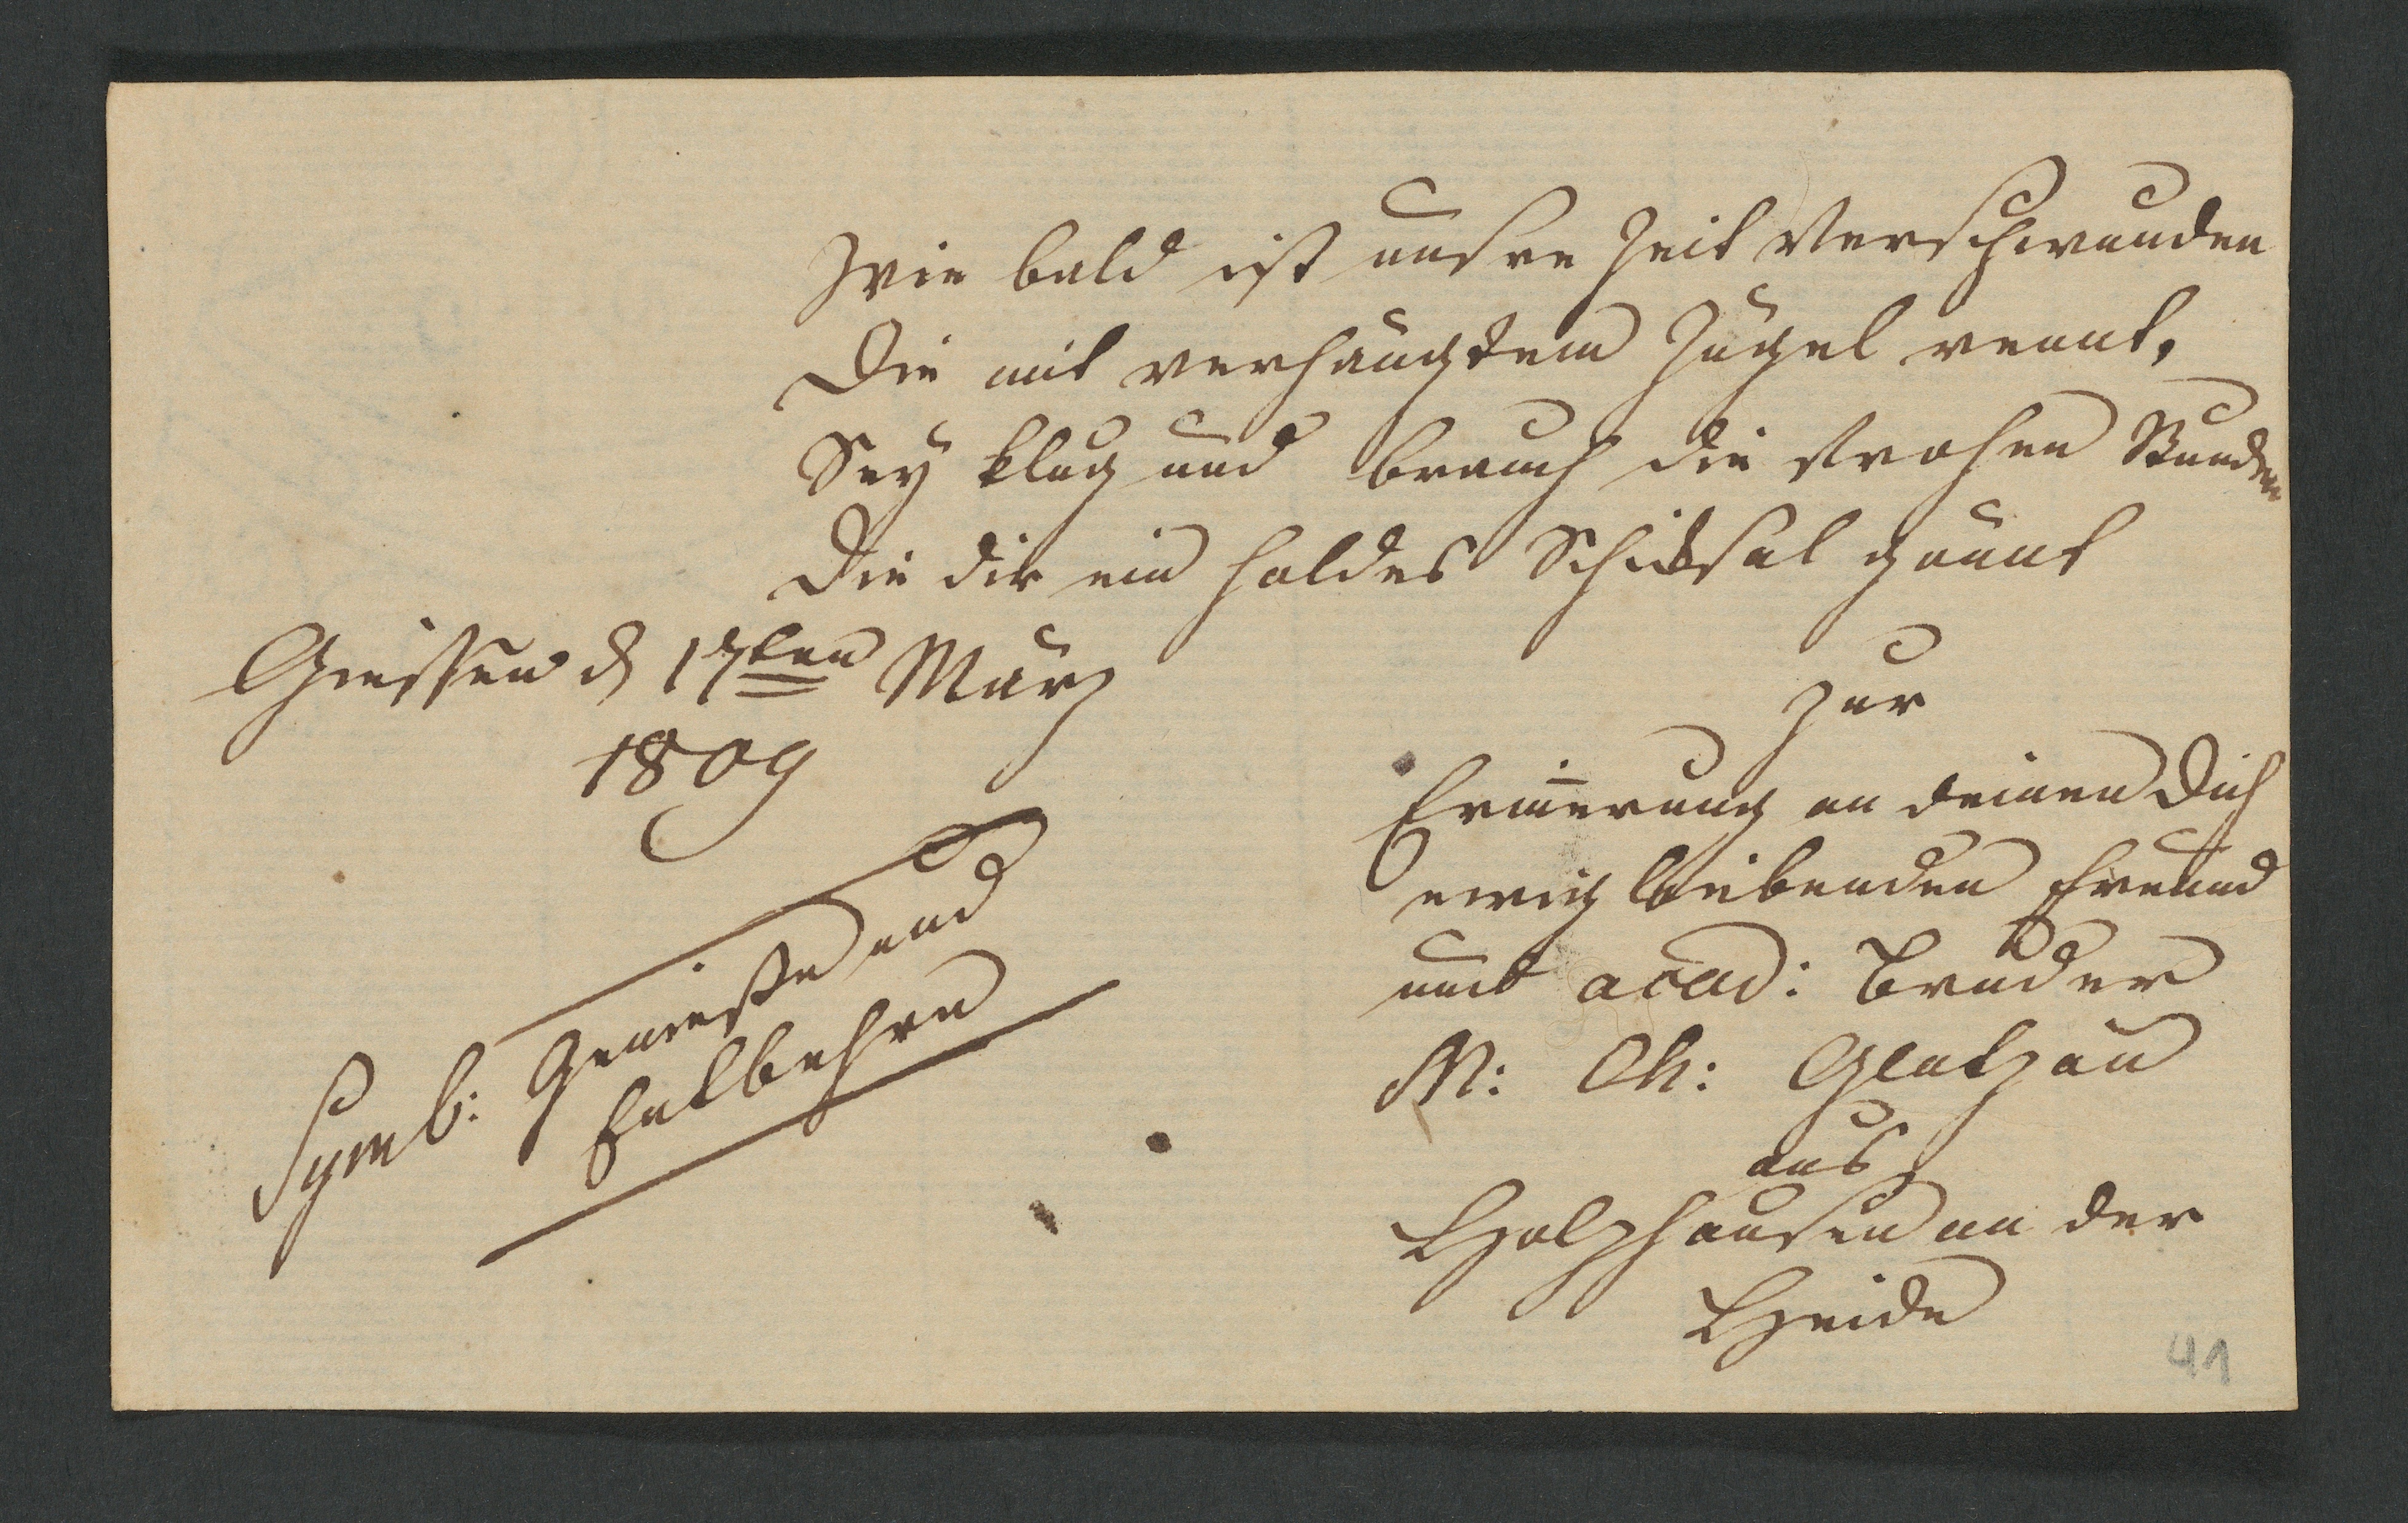 Wie bald ist unsre Zeit verschwunden
Die mit verhängtem Zügel rennt,
Sey klug und brauch die frohen Stunden
Die dir ein holdes Schiksal gönnt
Giessen d 17ten März
1809
zur
Erin̄erung an deinen Dich
ewig liebenden Freund
und acad: Bruder
M: Ch:
aus
Holzhausen an der
Heide
Symb: Genieße und
Entbehre
41